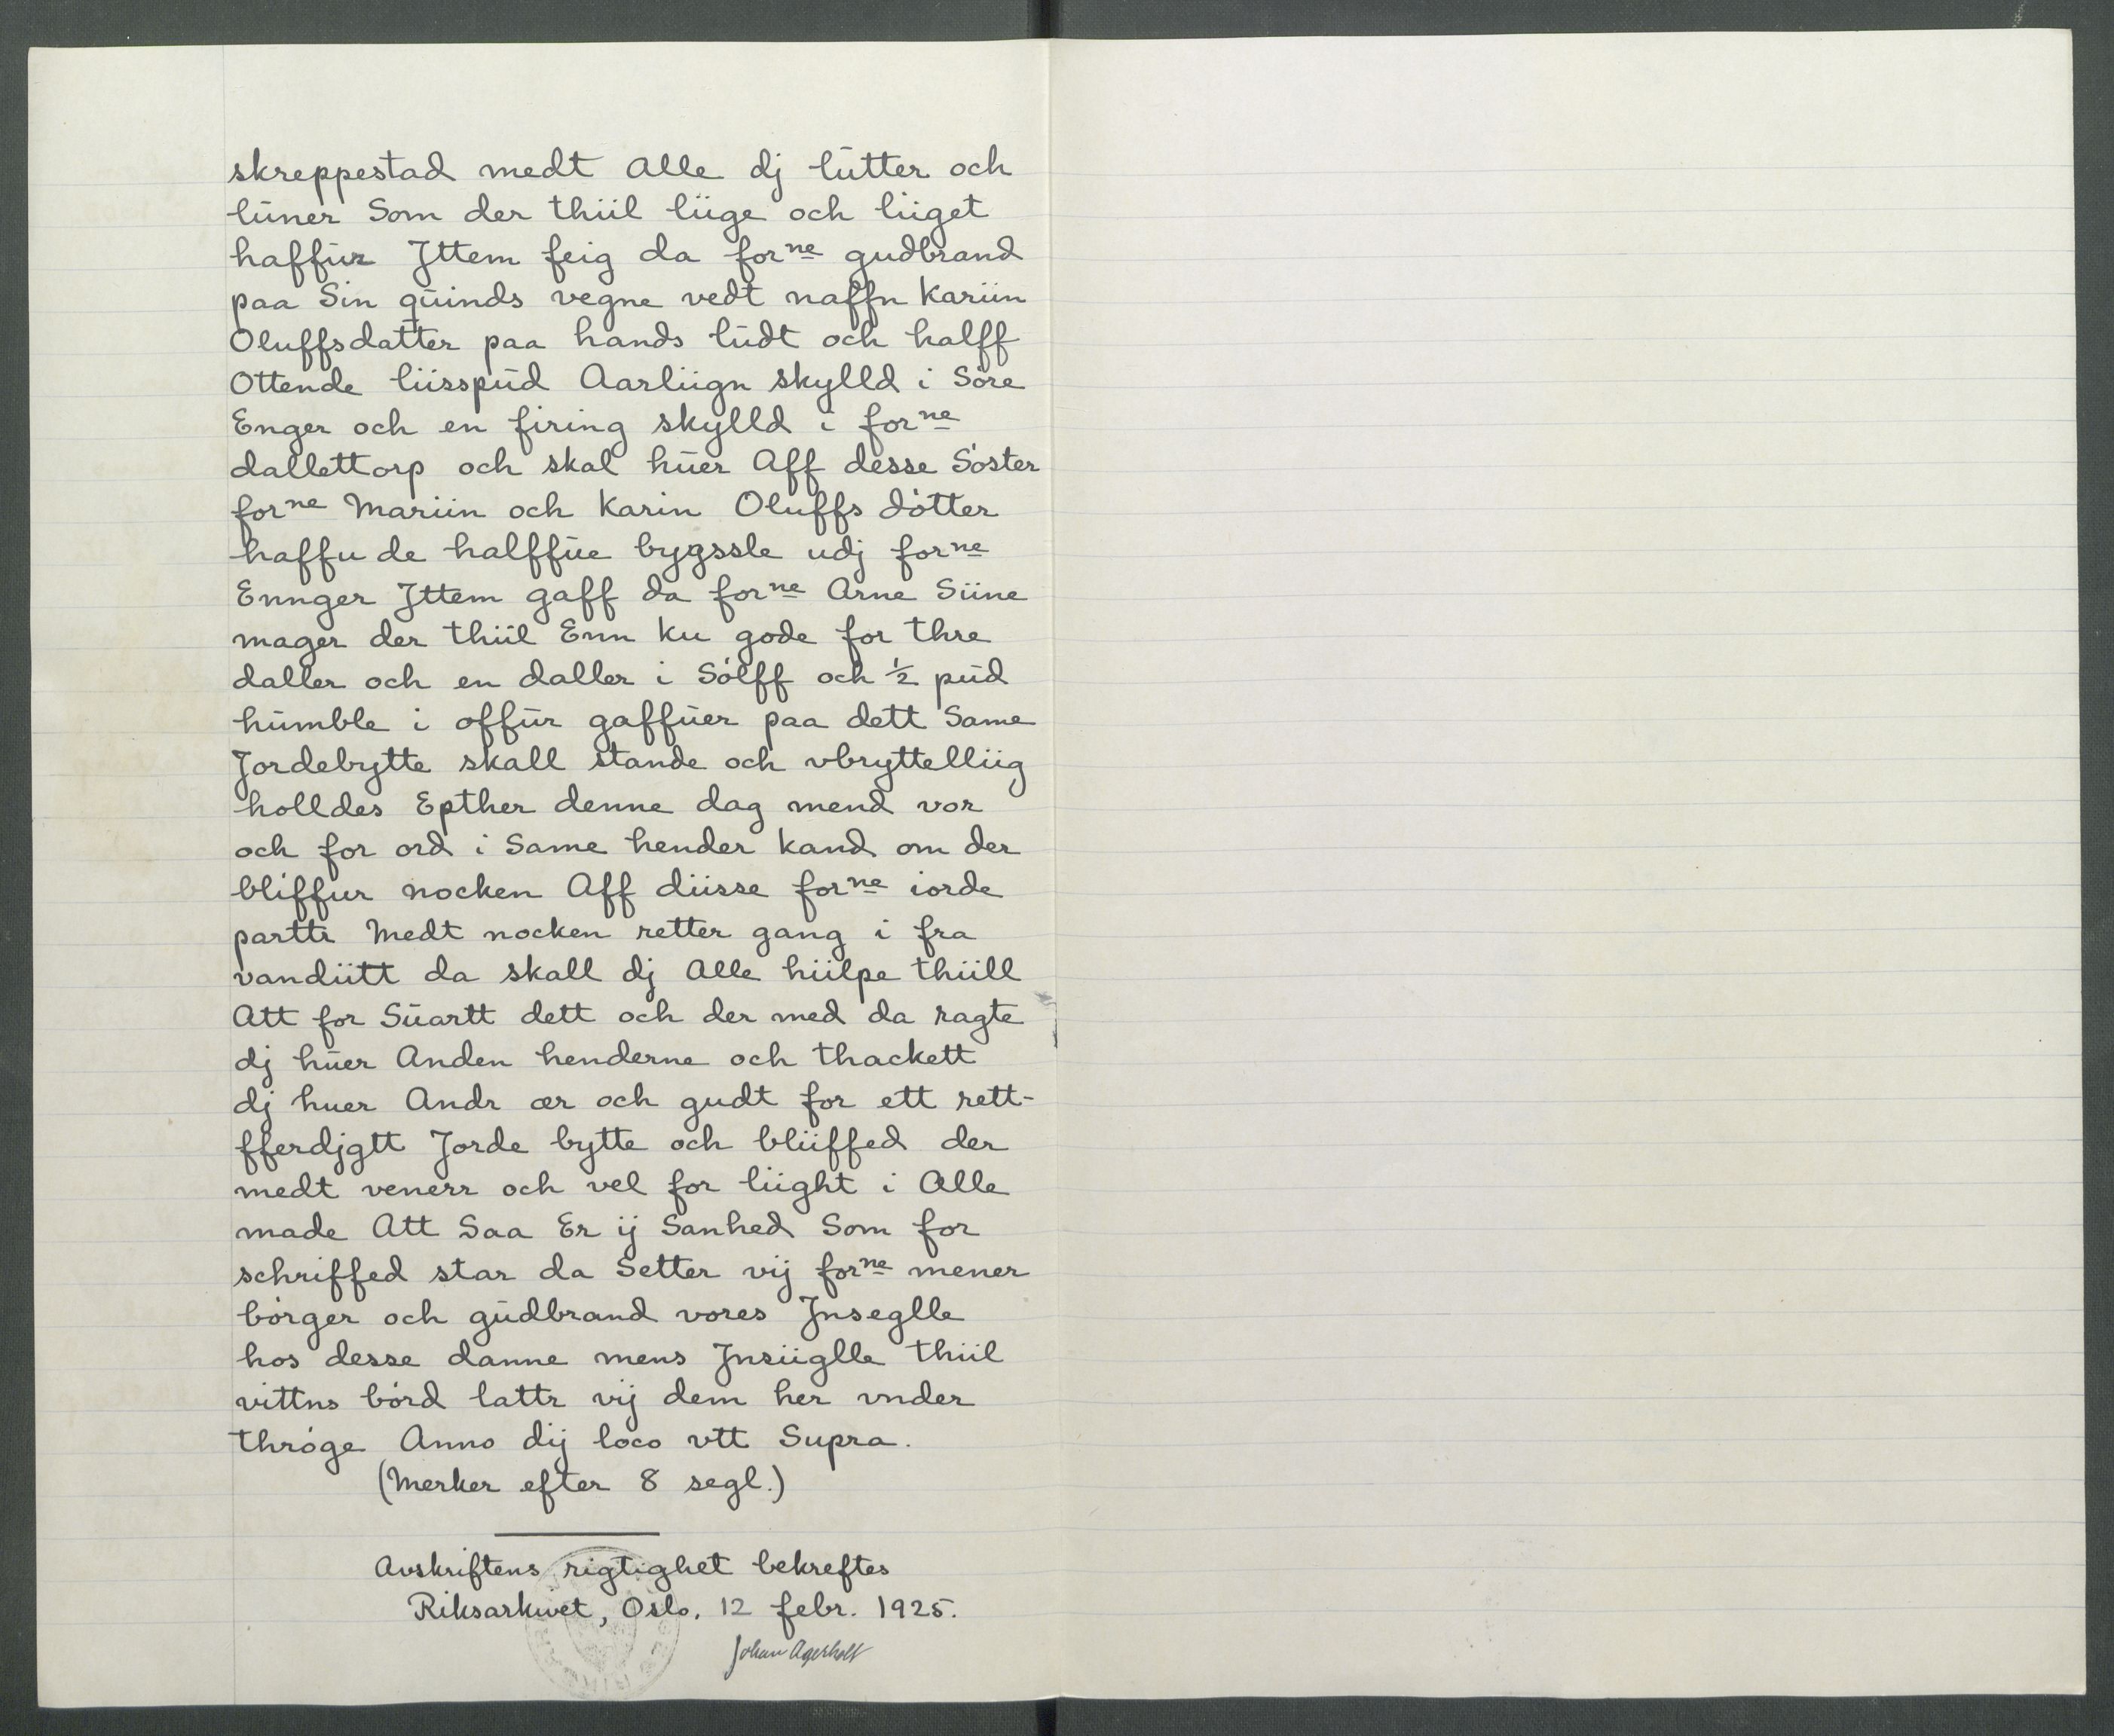 skreppestad medt Alle dj lūtter och
lūner Som der thiil liige och liiget
haffūr Jttem feig da forne gudbrand
paa Sin qūinds vegne vedt naffn Kariin
Oluffsdatter paa hands lūdt och halff
Ottende liisspūd Aarliign skylld i Söre
Enger och en firing skylld i forne
dallettorp och skal hūer Aff desse Söster
forne Mariin och Karin Oluffs dötter
haffu de halffūe bygssle udj forne
Ennger Jttem gaff da forne Arne Siine
mager der thiil Enn ku gode for thre
daller och en daller i Sölff och ½ pūd
hūmble i offūr gaffūer paa dett Same
Jordebytte skall stande och vbryttelliig
holldes Epther denne dag mend vor
och for ord i Same hender kand om der
bliffur nocken Aff diisse forne iorde
partte Medt nocken retter gang i fra
vandiitt da skall dj Alle hiilpe thiill
Att for Sūartt dett och der med da ragte
dj hūer Anden henderne och thackett
dj huer Andr ær och gudt for ett rett-
fferdjgtt Jorde bytte och bliiffed der
medt venerr och vel for liight i Alle
made Att Saa Er ij Sanhed Som for
schriffed star da Setter vij forne mener
börger och gūdbrand vores Jnseglle
hos desse danne mens Jnsiiglle thiil
vittns börd lattr vij dem her vnder
thröge Anno dij loco vtt Supra.
(Merker efter 8 segl.)
Avskriftens rigtighet bekreftes
Riksarkivet, Oslo, 12 febr. 1925.
Johan Agerholt